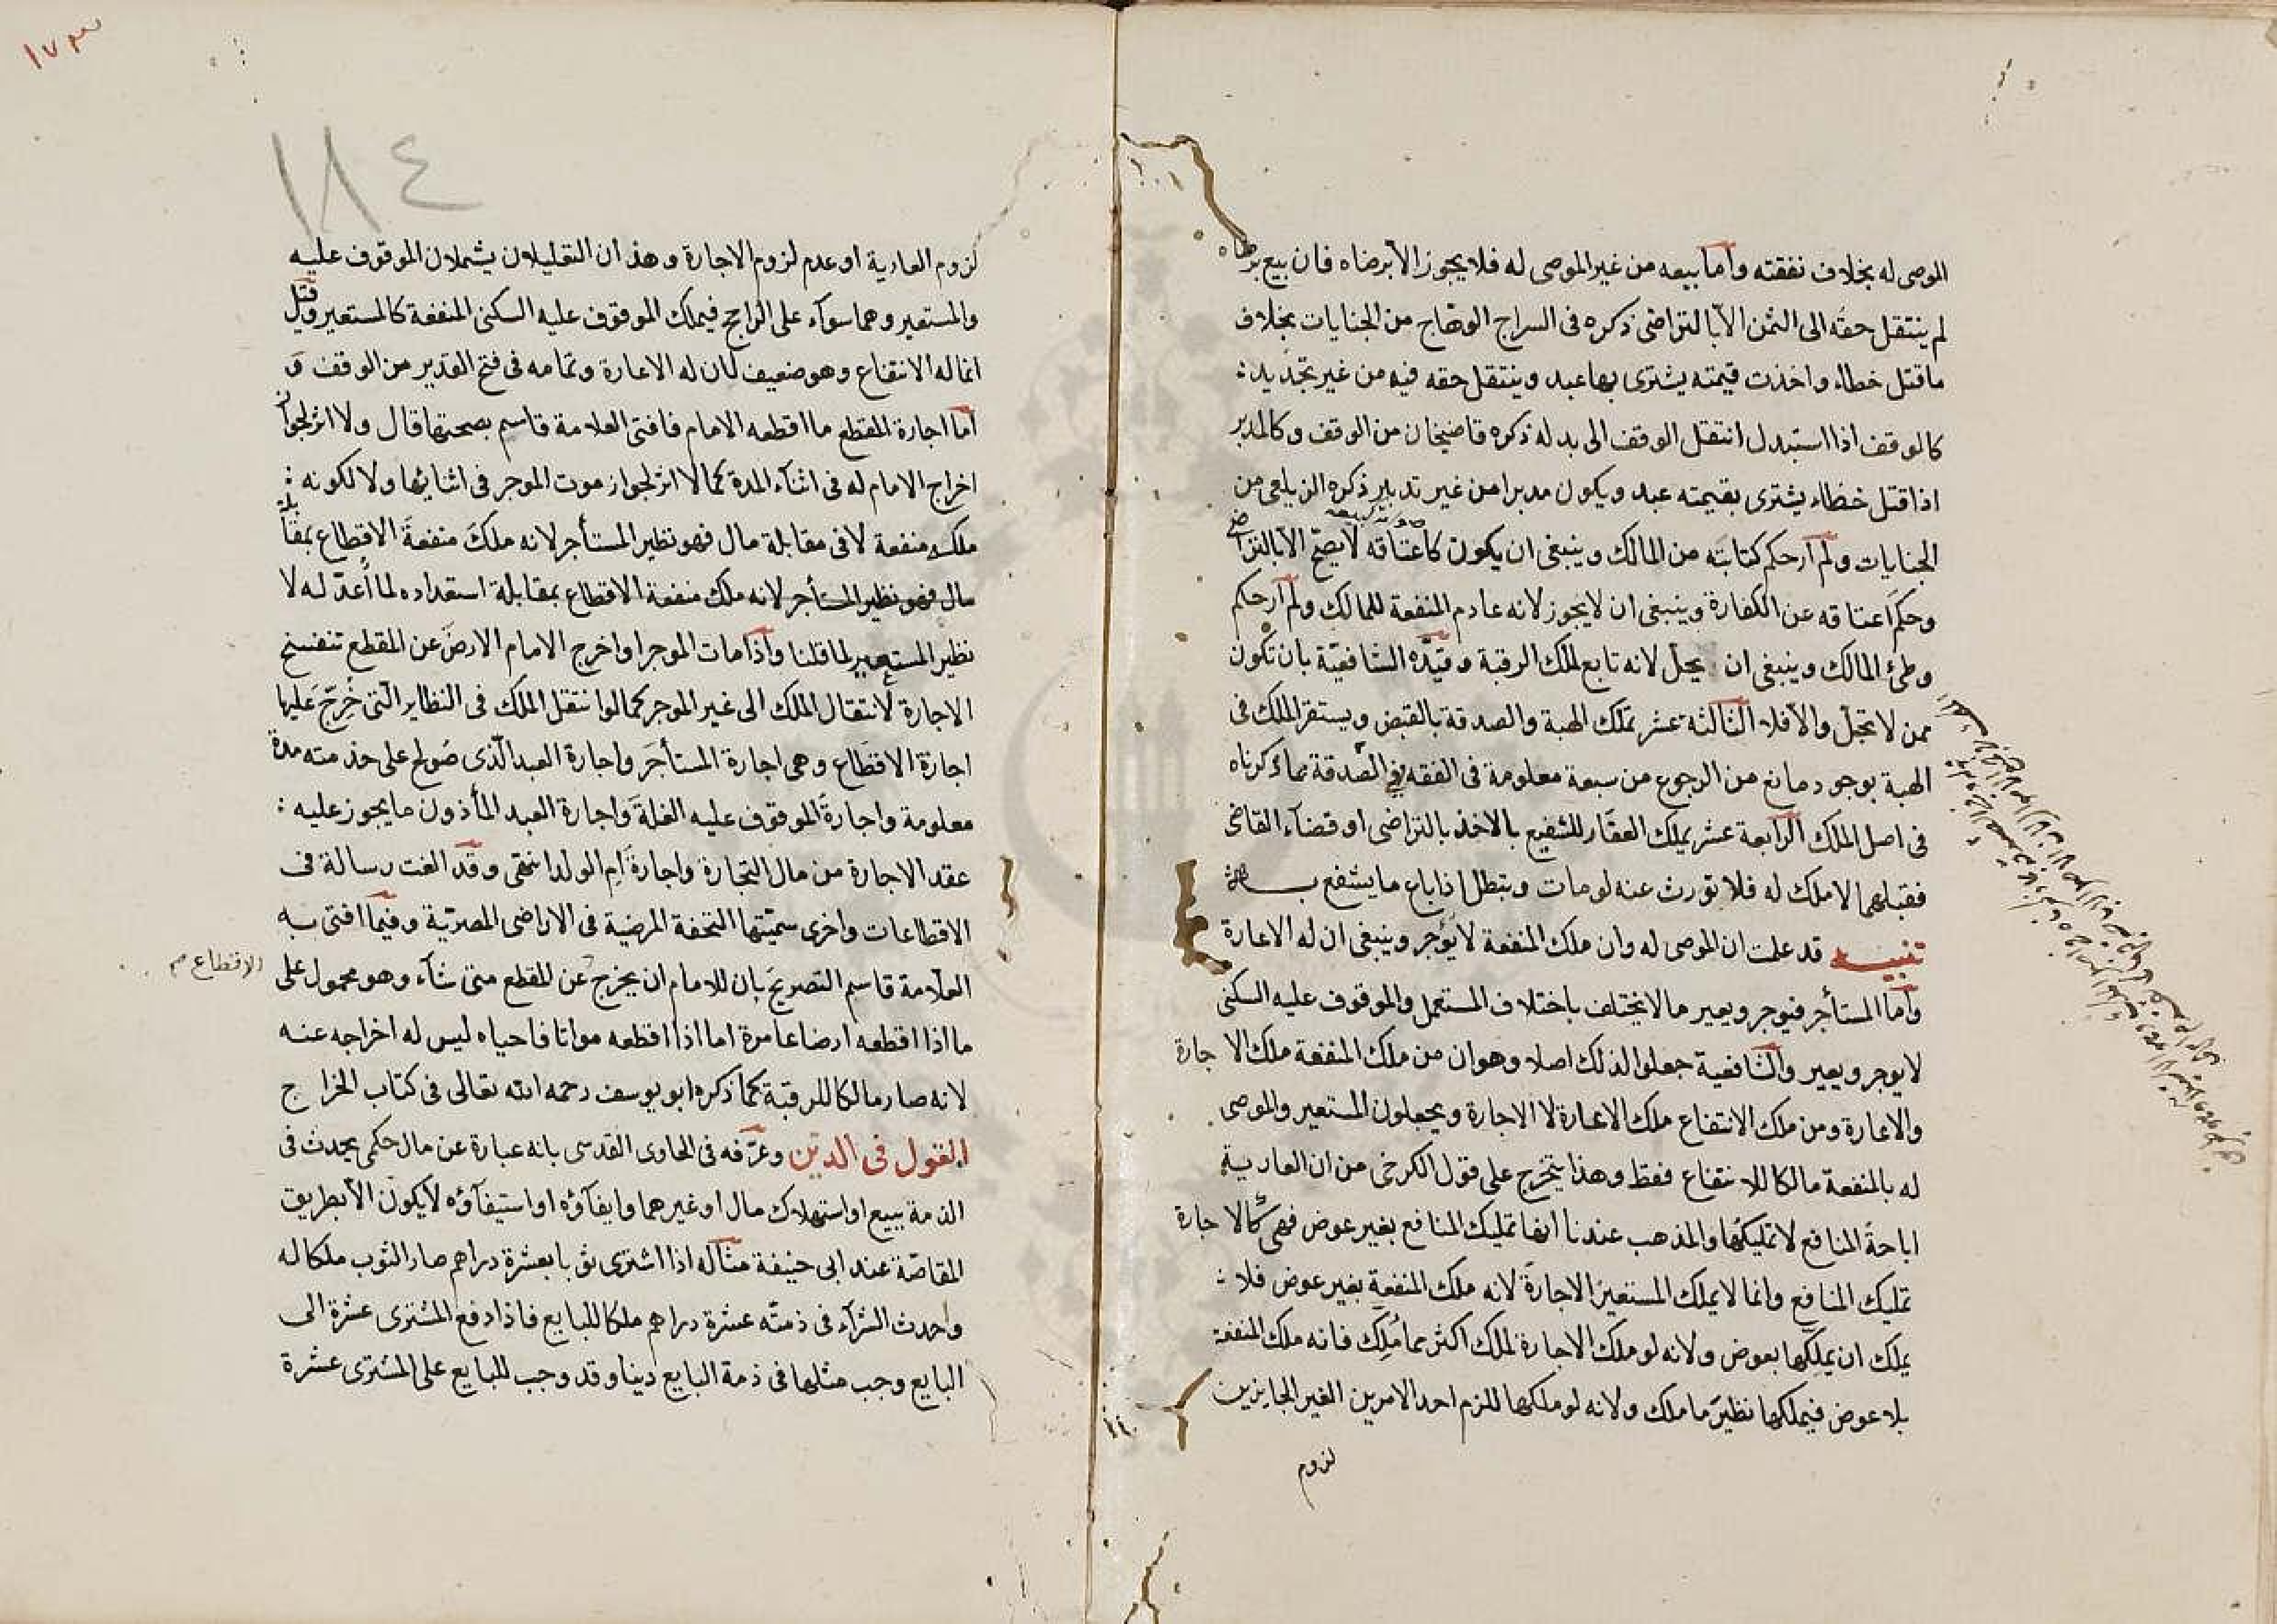 الموصى له بخلاف نفقته وأما بيعه من غير الموصى له فلا يجوز الا برضاه فان بيع برضاه
لم ينتقل حقه الى الثمن الا بالتراضى ذكره فى السراج الوهاج من الجنايات بخلاف
ما قتل خطاء واخذت قيمته يشترى بها عبد وينتقل حقه فيه من غير تجديد
كالوقف اذا استبدل انتقل الوقف الى بدله ذكره قاضيخان من الوقف وكالمدبر
اذا قتل خطاء يشترى بقيمته عبد ويكون مدبرا من غير تدبير ذكره الزيلعى من
الجنايات ولم أر حكم كتابته من المالك وينبغى ان يكون كاعتاقه لا يصح الا بالتراضى
وحكم اعتاقه عن الكفارة وينبغى ان لا يجوز لانه عادم المنفعة للمالك ولم أر حكم
وطئ المالك وينبغى ان يحل لانه تابع لملك الرقبة وقيده الشافعية بان تكون
ممن لا تحبل والا فلا الثالثة عشر تملك الهبة والصدقة بالقبض ويستقر الملك فى
الهبة بوجود مانع من الرجوع من سبعة معلومة فى الفقه فى الصدقة بما ذكرناه
فى اصل الملك الرابعة عشر يملك العقار للشفيع بالاخذ بالتراضى او قضاء القاضى
فقبلهما لا ملك له فلا تورث عنه لو مات وتبطل اذا باع ما يشفع به
تنبيه قد علمت ان الموصى له وان ملك المنفعة لا يؤجر وينبغى ان له الاعارة
وأما المستأجر فيوجر ويعير ما لا يختلف باختلاف المستعمل والموقوف عليه السكنى
لا يوجر ويعير والشافعية جعلوا لذلك اصلا وهو ان من ملك المنفعة ملك الاجارة
والاعارة ومن ملك الانتفاع ملك الاعارة لا الاجارة ويجعلون المستعير والموصى
له بالمنفعة مالكا للانتفاع فقط وهذا يتخرج على قول الكرخى من ان العارية
اباحة المنافع لا تمليكها والمذهب عندنا انها تمليك المنافع بغير عوض فهى كالاجارة
تمليك المنافع وانما لا يملك المستعير الاجارة لانه ملك المنفعة بغير عوض فلا
يملك ان يملكها بعوض ولانه لو ملك الاجارة لملك اكثر مما ملك فانه ملك المنفعة
بلا عوض فيملكها نظير ما ملك ولانه لو ملكها للزم احد الامرين الغير الجايزين
لزوم
١٧٣
١٨٤
لزوم العارية او عدم لزوم الاجارة وهذان التعليلان يشملان الموقوف عليه
والمستعير وهما سوآء على الراجح فيملك الموقوف عليه السكنى المنفعة كالمستعير وقيل
انما له الانتفاع وهو ضعيف لان له الاعارة وتمامه فى فتح القدير من الوقف و
أما اجارة المقطع ما اقطعه الامام فافتى العلامة قاسم بصحتها قال ولا اثر لجواز
اخراج الامام له فى اثنآء المدة كما لا اثر لجواز موت الموجر فى اثنايها ولا لكونه
ملك منفعة لا فى مقابلة مال فهو نظير المستأجر لانه ملك منفعة الاقطاع بمقابلة
مال فهو نظير المستأجر لانه ملك منفعة الاقطاع بمقابلة استعداده لما اعد له لا
نظير المستعير لما قلنا واذا مات الموجر او اخرج الامام الارض عن المقطع تنفسخ
الاجارة لانتقال الملك الى غير الموجر كما لو انتقل الملك فى النظاير التى خرج عليها
اجارة الاقطاع وهى اجارة المستأجر واجارة العبد الذى صولح على خدمته مدة
معلومة واجارة الموقوف عليه الغلة واجارة العبد المأذون ما يجوز عليه
عقد الاجارة من مال التجارة واجارة ام الولد انتهى وقد الفت رسالة فى
الاقطاعات واخرى سميتها التحفة المرضية فى الاراضى المصرية وفيما افتى به
العلامة قاسم التصريح بان للامام ان يخرج عن المقطع متى شآء وهو محمول على
الاقطاع م
ما اذا اقطعه ارضا عامرة اما اذا اقطعه مواتا فاحياه ليس له اخراجه عنه
لانه صار مالكا للرقبة كما ذكره ابو يوسف رحمه الله تعالى فى كتاب الخراج
القول فى الدين وعرفه فى الحاوى القدسى بانه عبارة عن مال حكمى يحدث فى
الذمة ببيع او استهلاك مال او غيرهما وايفآؤه او استيفآؤه لا يكون الا بطريق
المقاصة عند ابى حنيفة مثاله اذا اشترى ثوبا بعشرة دراهم صار الثوب ملكا له
واحدث الشرآء فى ذمته عشرة دراهم ملكا للبايع فاذا دفع المشترى عشرة الى
البايع وجب مثلها فى ذمة البايع دينا وقد وجب للبايع على المشترى عشرة